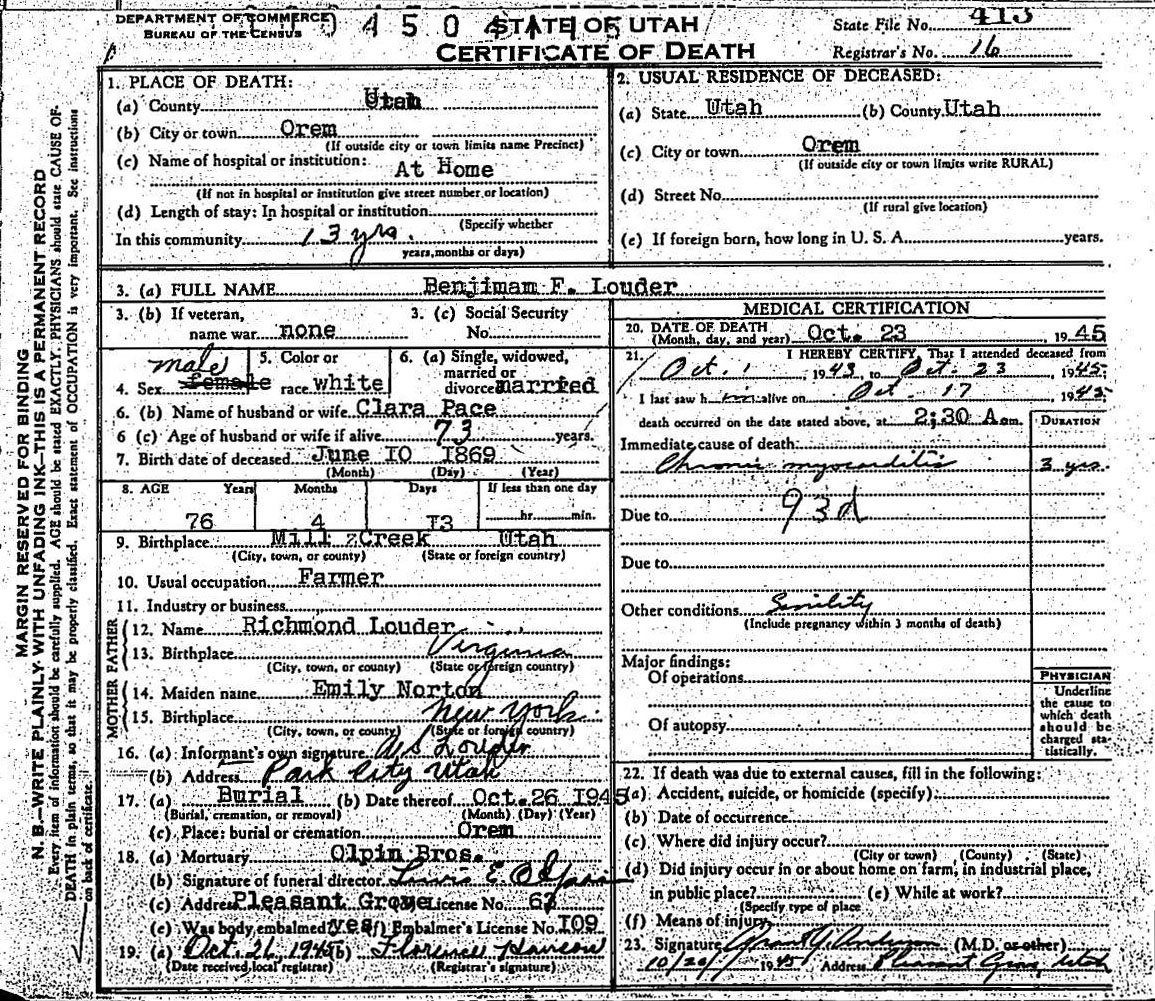 DEPARTMENT OF COMMERCE
BUREAU OF THE CENSUS
0 4 5 0 4
STATE OF UTAH
CERTIFICATE OF DEATH
State File No. 413
Registrar's No. 16
MARGIN RESERVED FOR BINDING
N. B.—WRITE PLAINLY WITH UNFADING INK—THIS IS A PERMANENT RECORD
Every item of information should be carefully supplied. AGE should be stated EXACTLY. PHYSICIANS should state CAUSE OF
DEATH in plain terms, so that it may be properly classified. Exact statement of OCCUPATION is very important. See instructions
on back of certificate.
1. PLACE OF DEATH:
(a) County Utah
(b) City or town Orem
(If outside city or town limits name Precinct)
(c) Name of hospital or institution:
At Home
(If not in hospital or institution give street number or location)
(d) Length of stay: In hospital or institution
(Specify whether
In this community 13 yrs.
years, months or days)
2. USUAL RESIDENCE OF DECEASED:
(a) State Utah (b) County Utah
(c) City or town Orem
(If outside city or town limits write RURAL)
(d) Street No.
(If rural give location)
(e) If foreign born, how long in U. S. A. years.
3. (a) FULL NAME Benjimam F. Louder
3. (b) If veteran,
name war none
3. (c) Social Security
No.
male
4. Sex female
5. Color or
race white
6. (a) Single, widowed,
married or
divorced married
6. (b) Name of husband or wife Clara Pace
6 (c) Age of husband or wife if alive 73 years.
7. Birth date of deceased June IO I869
(Month) (Day) (Year)
8. AGE Years Months Days If less than one day
76 4 I3 hr. min.
9. Birthplace Mill zCreek Utah
(City, town, or county) (State or foreign country)
10. Usual occupation Farmer
11. Industry or business
FATHER
12. Name Richmond Louder
13. Birthplace Virginia
(City, town, or county) (State or foreign country)
MOTHER
14. Maiden name Emily Norton
15. Birthplace New York
(City, town, or county) (State or foreign country)
16. (a) Informant's own signature Louder
(b) Address Park City Utah
17. (a) Burial (b) Date thereof Oct. 26 I945
(Burial, cremation, or removal) (Month) (Day) (Year)
(c) Place: burial or cremation Orem
18. (a) Mortuary Olpin Bros.
(b) Signature of funeral director Lewis E Olpin
(c) Address Pleasant Grove License No. 63
(e) Was body embalmed? yes (f) Embalmer's License No. I09
19. (a) Oct. 26, 1945 (b) Florence Hanson
(Date received local registrar) (Registrar's signature)
MEDICAL CERTIFICATION
20. DATE OF DEATH
(Month, day, and year) Oct. 23 1945
21. I HEREBY CERTIFY, That I attended deceased from
Oct. 1 1943, to Oct. 23, 1945
I last saw him alive on Oct. 17 1945
death occurred on the date stated above, at 2:30 A.m.
DURATION
Immediate cause of death:
Chronic myocarditis 3 yrs.
Due to 93d
Due to
Other conditions Senility
(Include pregnancy within 3 months of death)
Major findings:
Of operations
Of autopsy
PHYSICIAN
Underline
the cause to
which death
should be
charged sta-
tistically.
22. If death was due to external causes, fill in the following:
(a) Accident, suicide, or homicide (specify)
(b) Date of occurrence
(c) Where did injury occur?
(City or town) (County) (State)
(d) Did injury occur in or about home on farm, in industrial place,
in public place? (e) While at work?
(Specify type of place
(f) Means of injury
23. Signature Grant Y. Anderson (M.D. or other)
10/26/ 1945 Address Pleasant Grove, Utah